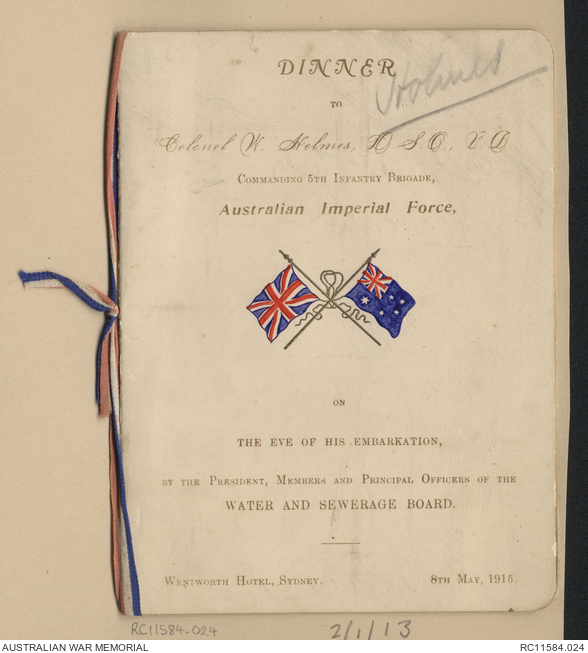 DINNER
Holmes
TO
Colonel W. Holmes, D.S.O., V D
COMMANDING 5TH INFANTRY BRIGADE,
Australian Imperial Force,
ON
THE EVE OF HIS EMBARKATION,
BY THE PRESIDENT, MEMBERS AND PRINCIPAL OFFICERS OF THE
WATER AND SEWERAGE BOARD.
WENTWORTH HOTEL, SYDNEY. 8TH MAY, 1915.
RC11584.024 2/1/13
AUSTRALIAN WAR MEMORIAL RC11584.024